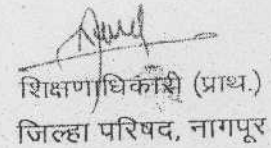 शिक्षणाधिकारी (प्राथ.)
जिल्हा परिषद, नागपूर